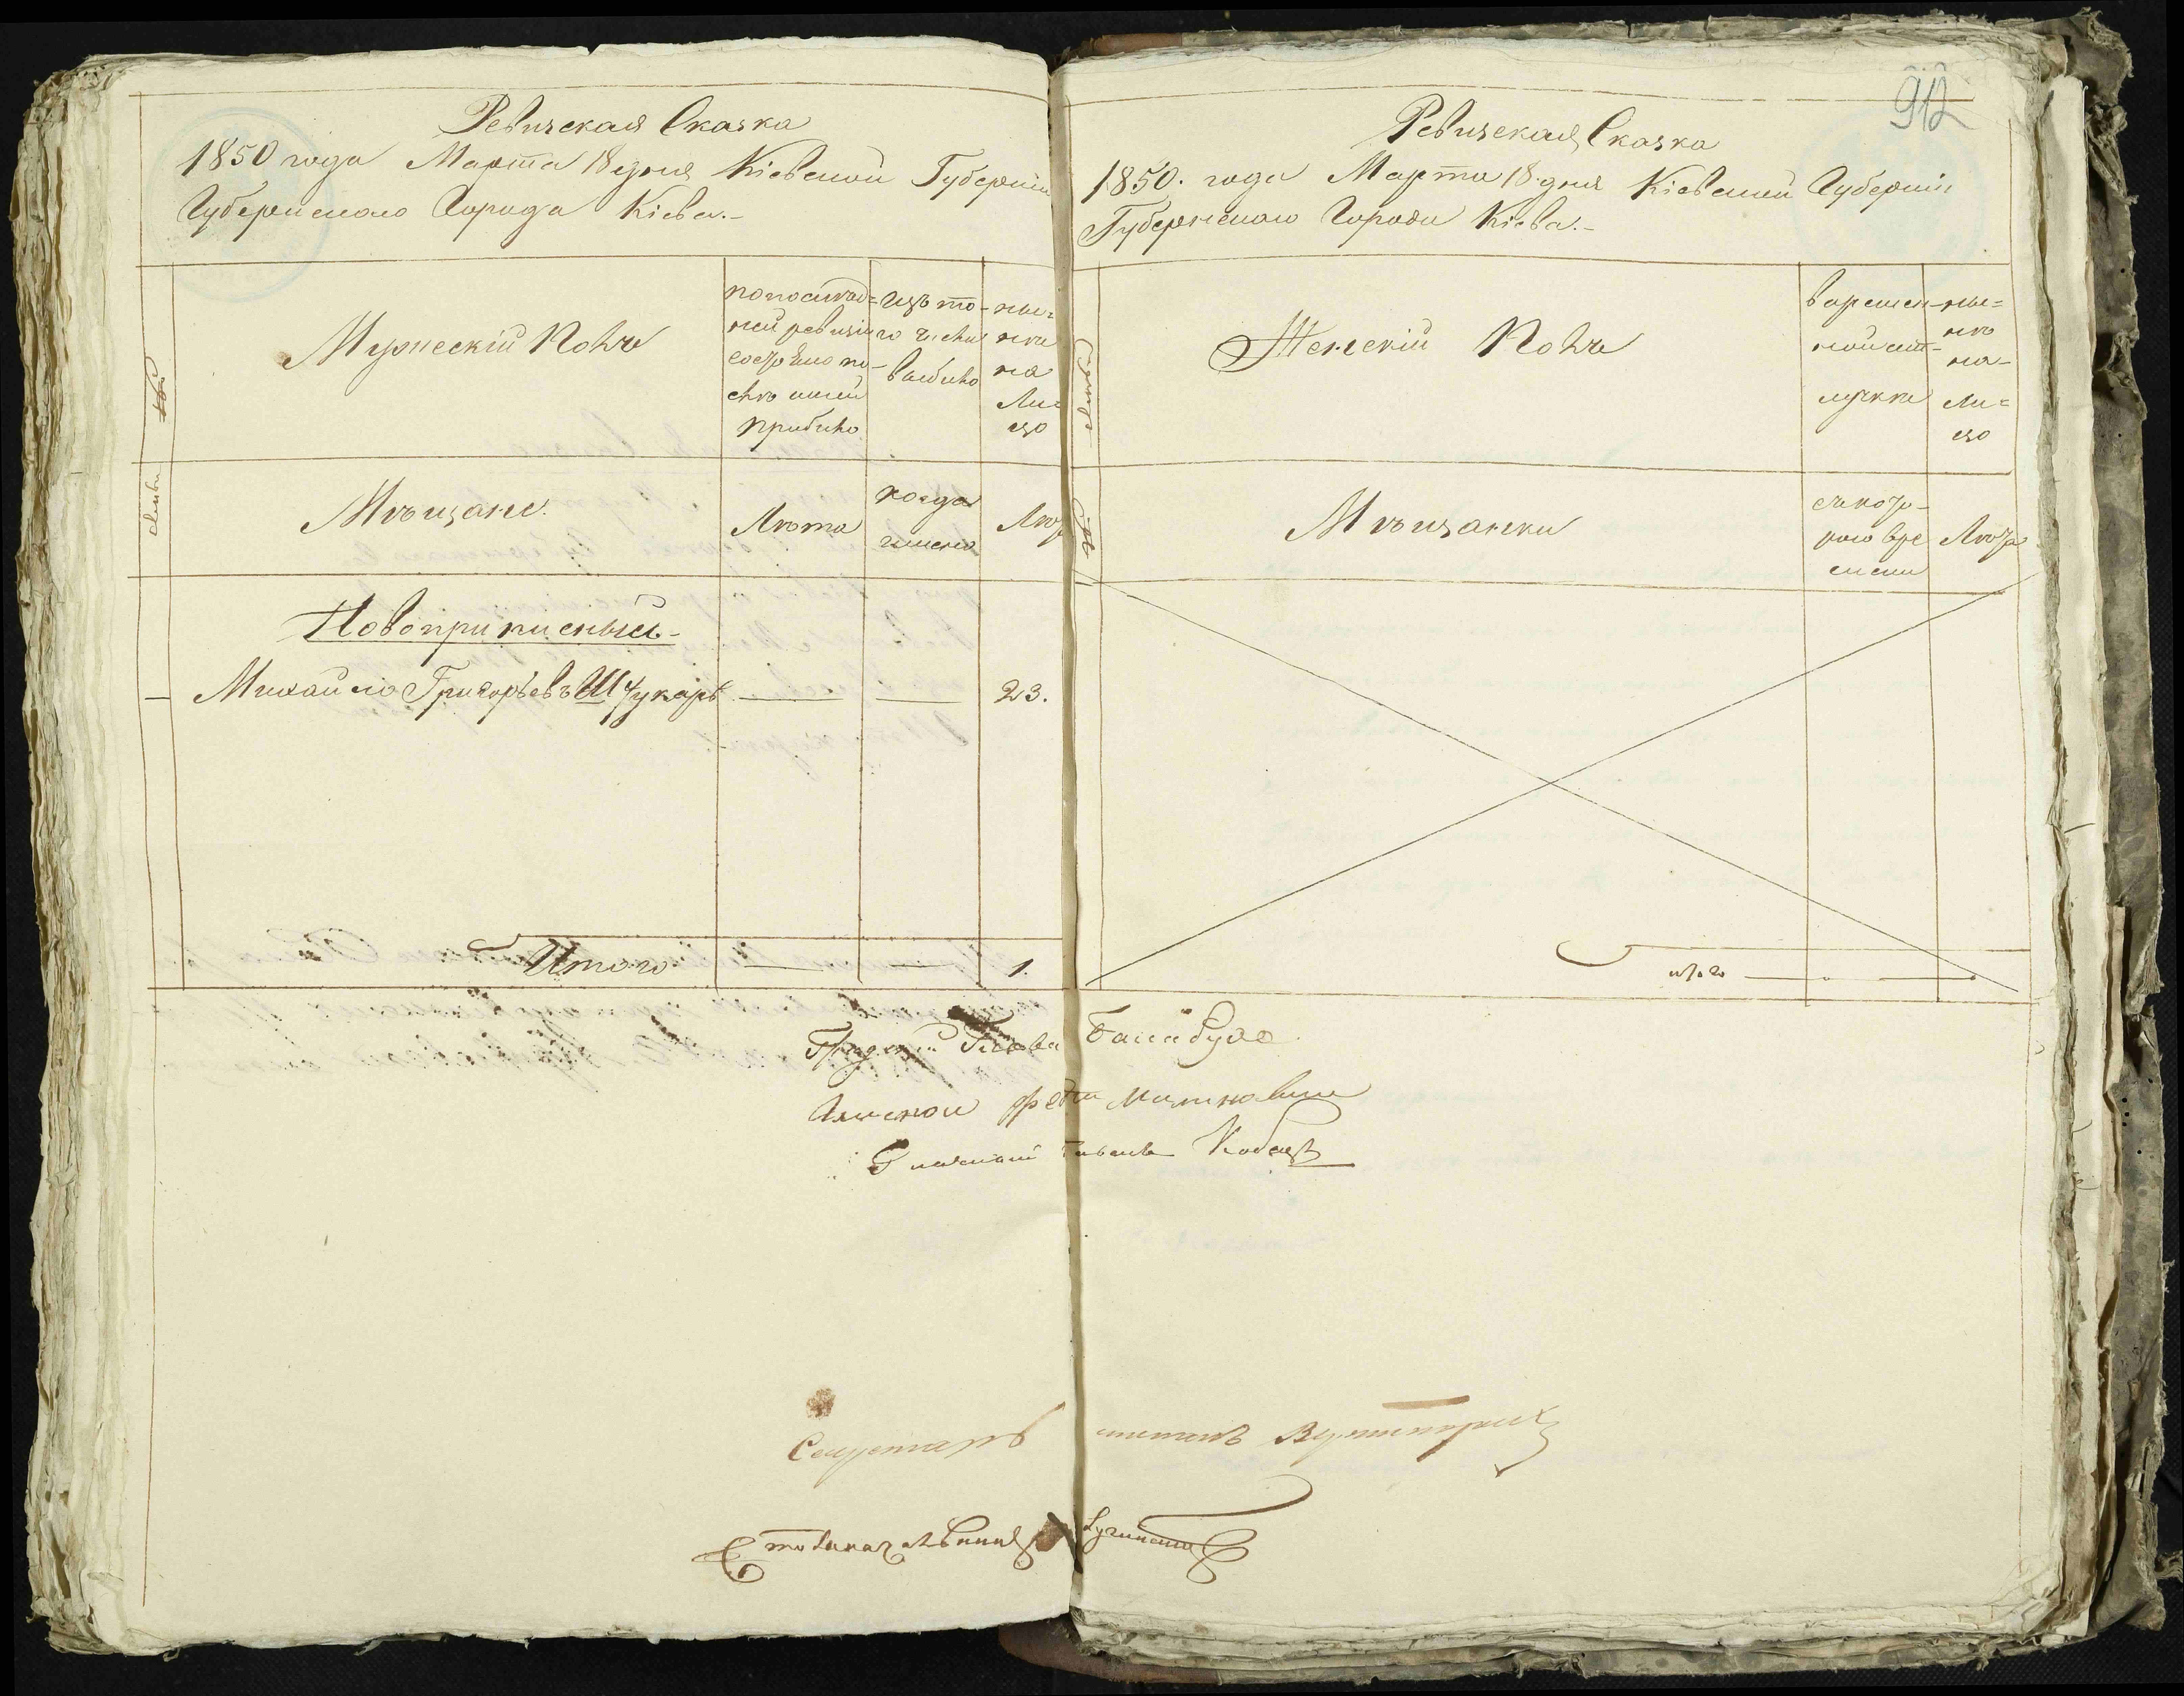 Ревизская Сказка
1850 года Марта 18 дня Кіевской Губерніи
Губернскаго Города Кіева.-
Мужескій Полъ
по послѣд=
ней ревизіи
состояло по-
слѣ оной
прибыло
изъ то-
го числа
выбыло
ны=
нѣ
на
Ли=
цо
семьи
Мѣщане.
Лѣта
когда
именно
Лѣта
Новоприписный-
— Михайло Григорьевъ Шчукарь — — 23.
Итого — — 1.
912
Ревизская Сказка
1850. года Марта 18 дня Кіевской Губерніи
Губернскаго Города Кіева.-
Женскій Полъ
во времен-
ной от-
лучке
ны=
нѣ
на-
ли=
цо
Мѣщанки
съ кото-
раго вре
мени
Лѣта
итого — —
Градскій Голова
Гласный
Секретарь
Столоначальникъ